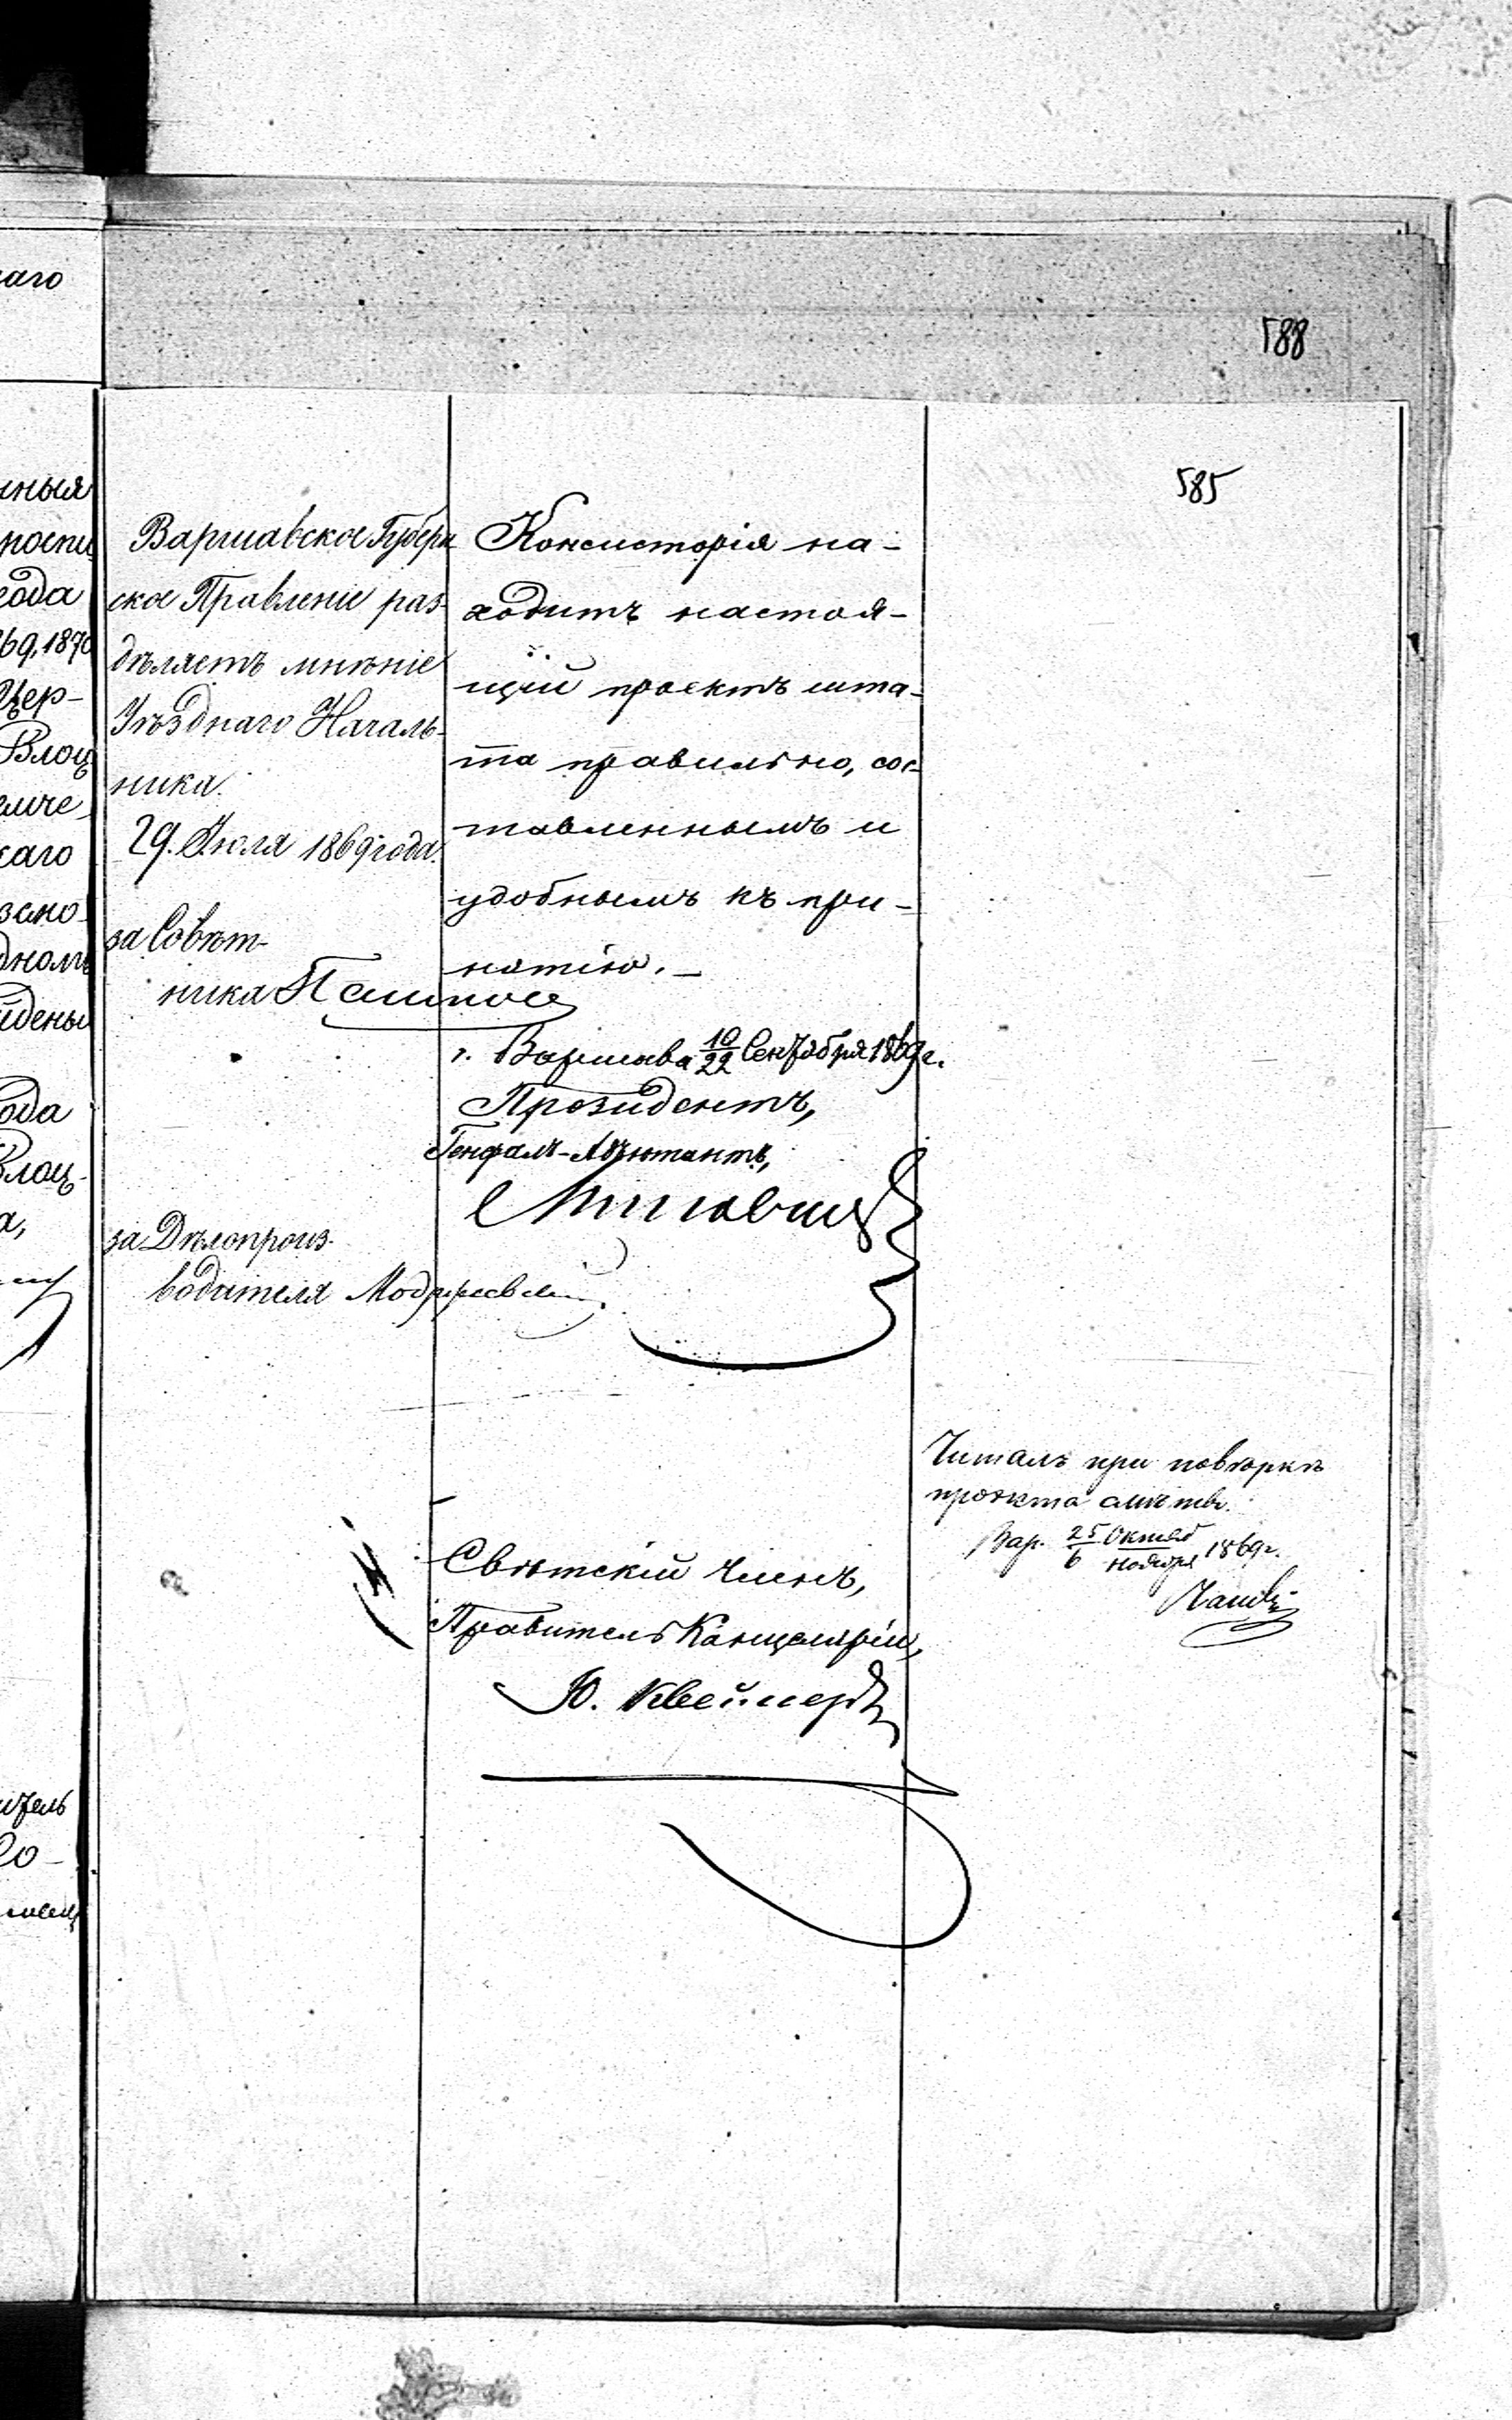 588
585
аго
ныя
ности
года
69, 1870
Цер-
Влоц
каго
ода
Влоц-
а,
Варшавское Губерн
ское Правленіе раз-
дѣляетъ мнѣніе
Уѣзднаго Началь-
ника.
29. Іюля 1869 года.
за Совѣт-
ника
за Дѣлопроиз-
водителя
Консисторія на-
ходитъ настоя-
щій проектъ шта-
та правильно, сос-
тавленнымъ и
удобнымъ къ при-
нятію. –
г. Варшава 10/22 Сентября 1869 г.
Президентъ,
Генералъ-Адъютантъ,
Свѣтскій Членъ,
Правитель Канцеляріи,
Ю.
Читалъ при повѣркѣ
проэкта смѣты.
Вар. 25 Октяб/6 ноября 1869 г.